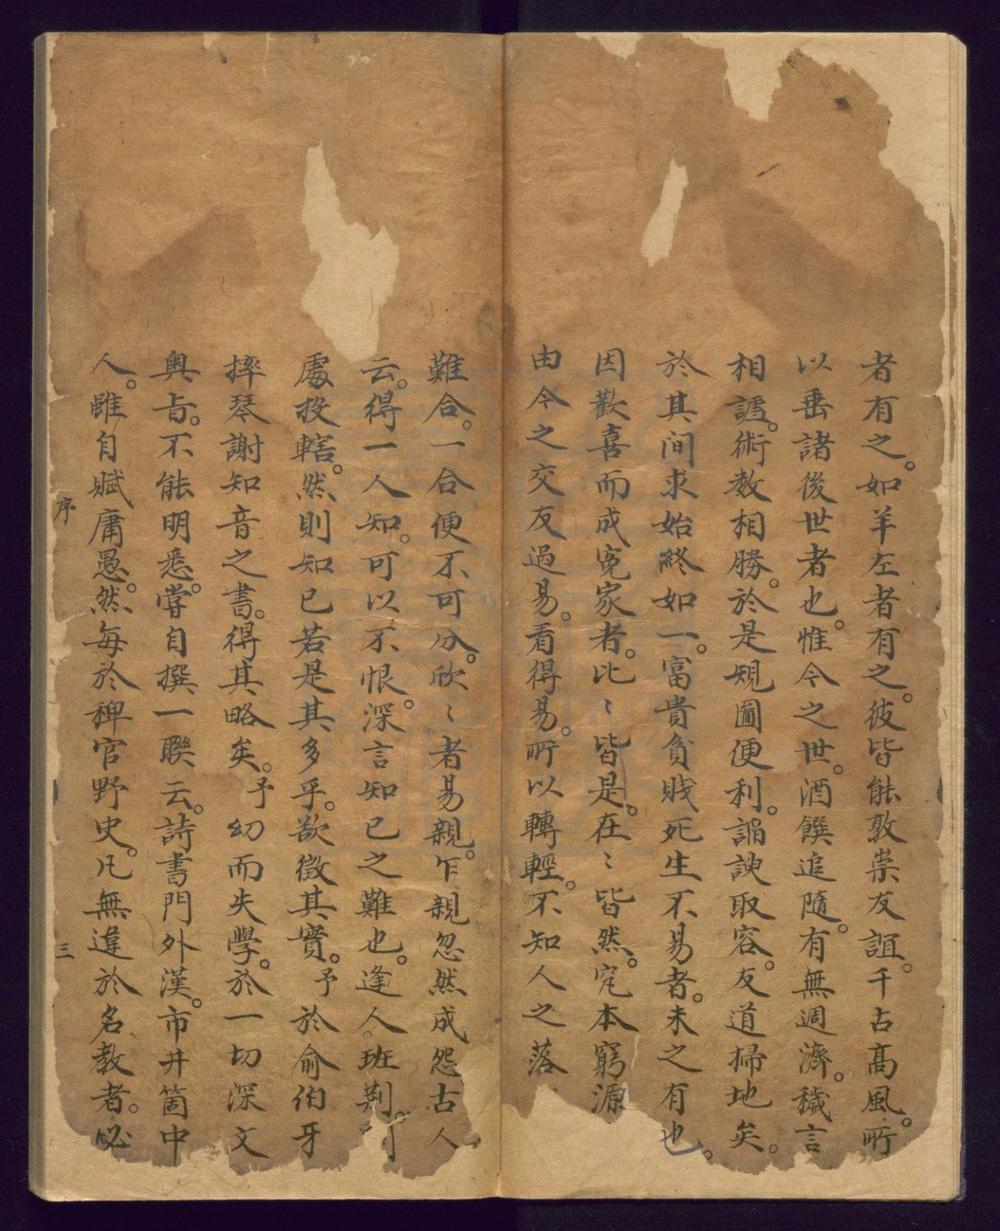 者有之。如羊左者有之。彼皆能敦崇友誼。千古高風。所
以垂諸後世者也。惟今之世。酒饌追隨。有無週濟。穢言
相謔。術数相勝。於是規圖便利。謟諛取容。友道掃地矣。
於其间求始終如一。富貴貧賎死生不易者。未之有也。
因歡喜而成寃家者。比〻皆是。在〻皆然。究本窮源
由今之交友過易。看得易。所以轉輕。不知人之落
難合。一合便不可分。欣〻者易親。乍親忽然成怨古人
云。得一人知。可以不恨。深言知已之難也。逢人班荆。
處投轄。然則知已若是其多乎。欲徵其實。予於俞伯牙
摔琴謝知音之書。得其略矣。予幼而失學。於一切深文
奥㫖。不能明悉。嘗自撰一聯云。詩書門外漢。市井箇中
人。雖自賦庸愚。然每於稗官野史。凢無違於名教者。必
序
三